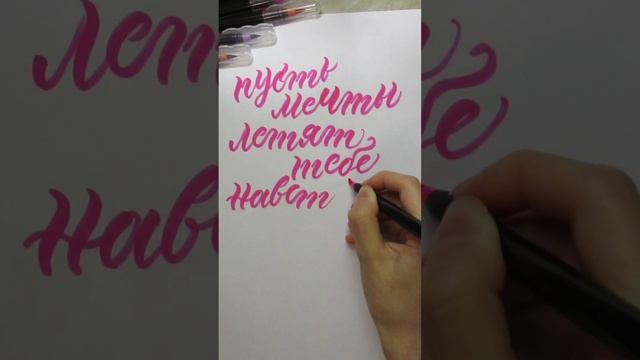 пусть
мечты
летят
тебе
навст